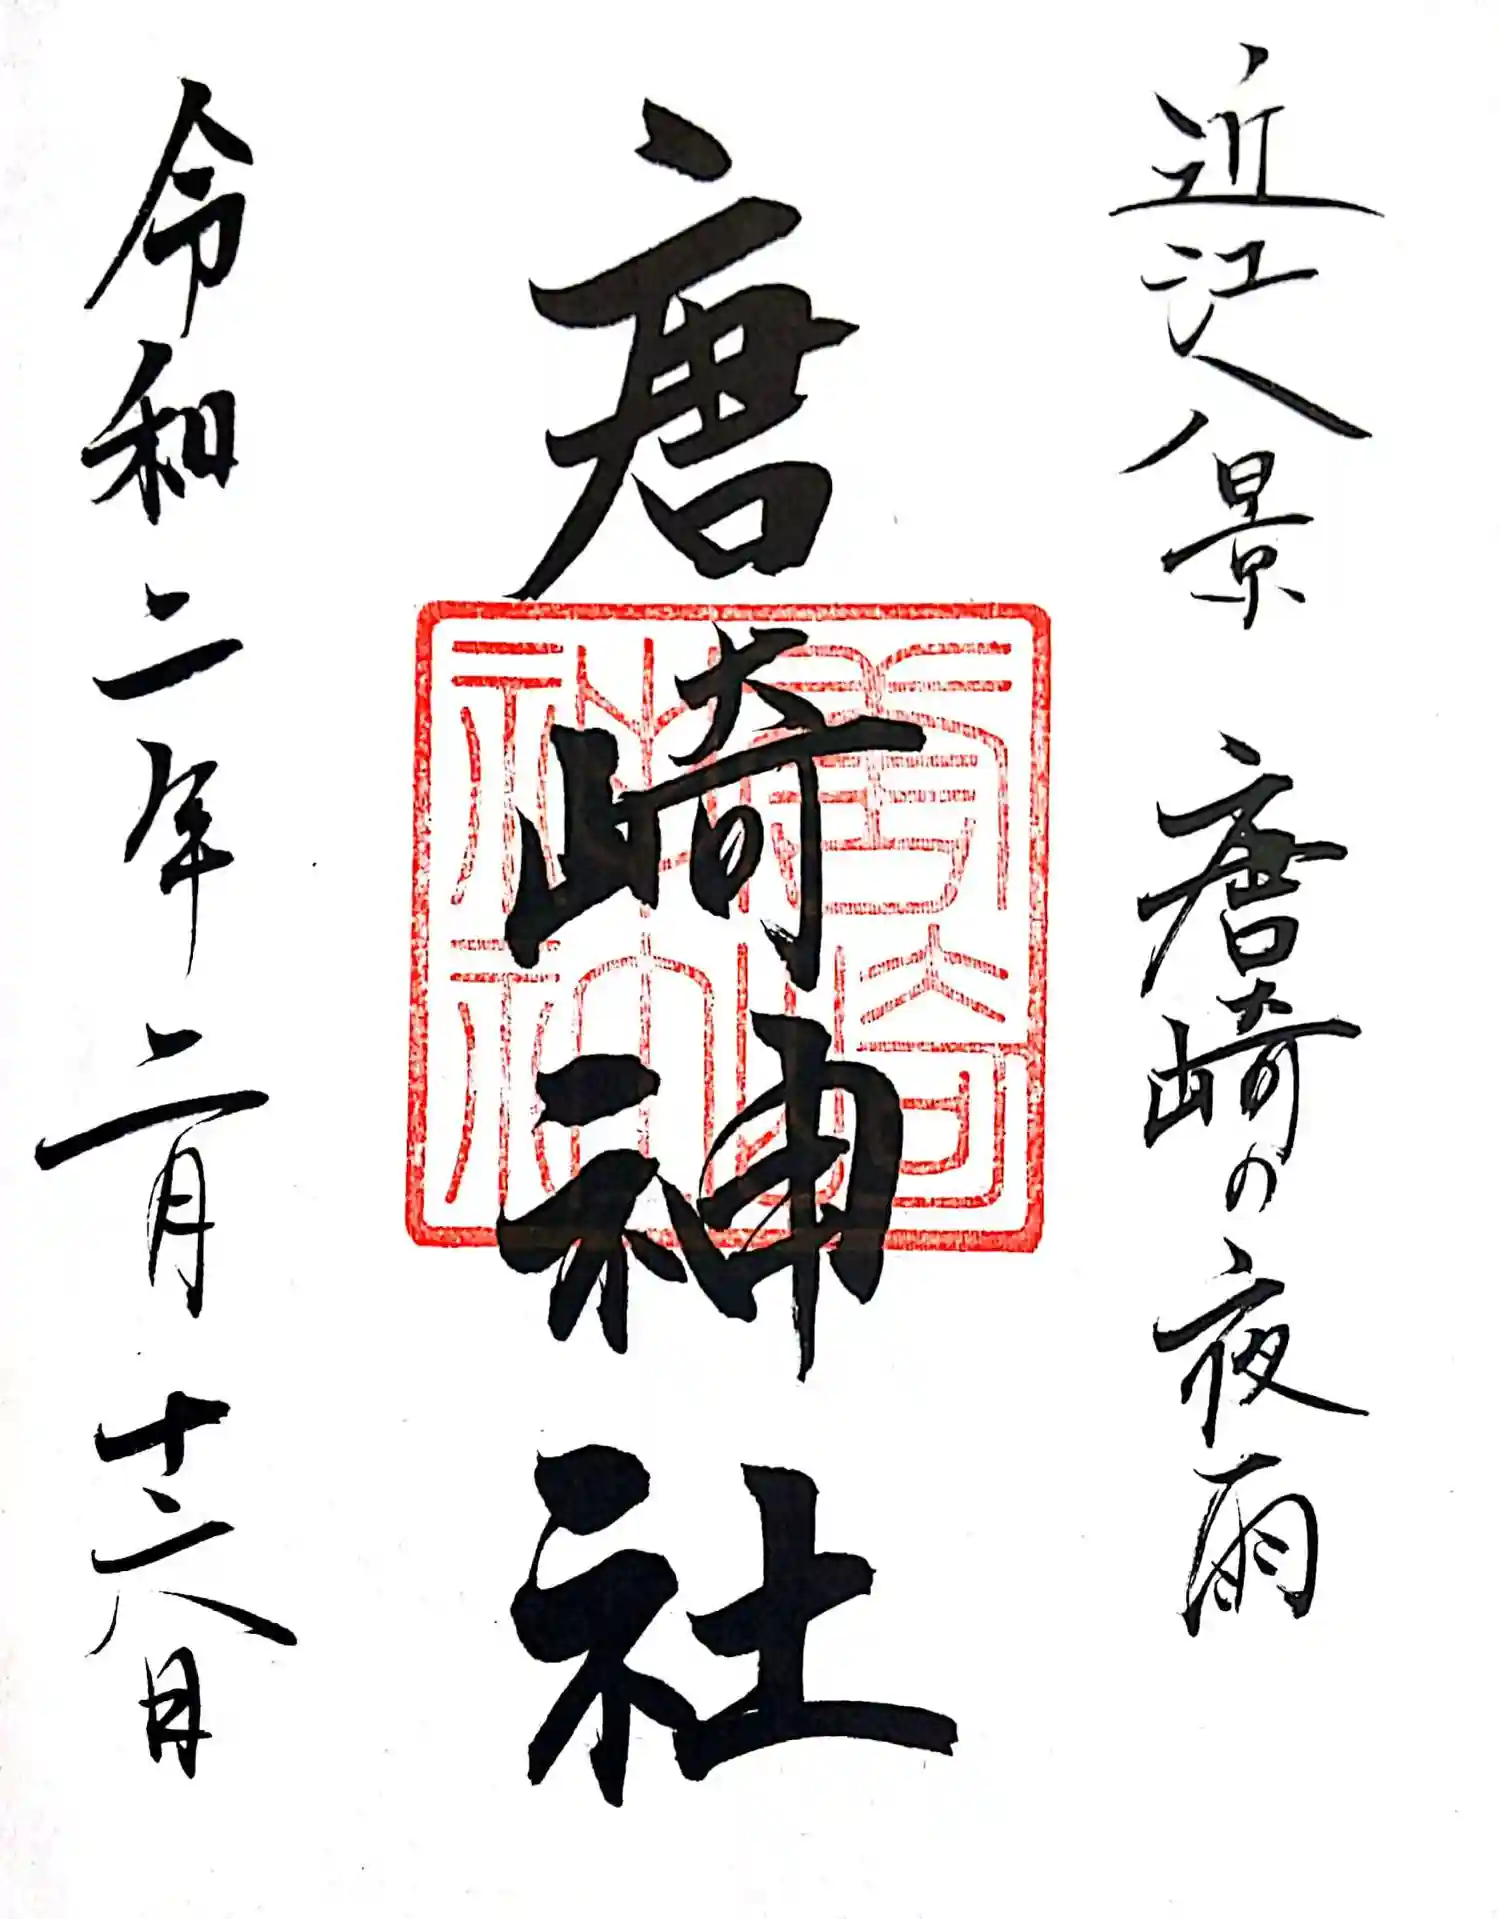 近江八景 唐崎の夜雨
唐崎神社
唐崎神社
令和二年二月十六日